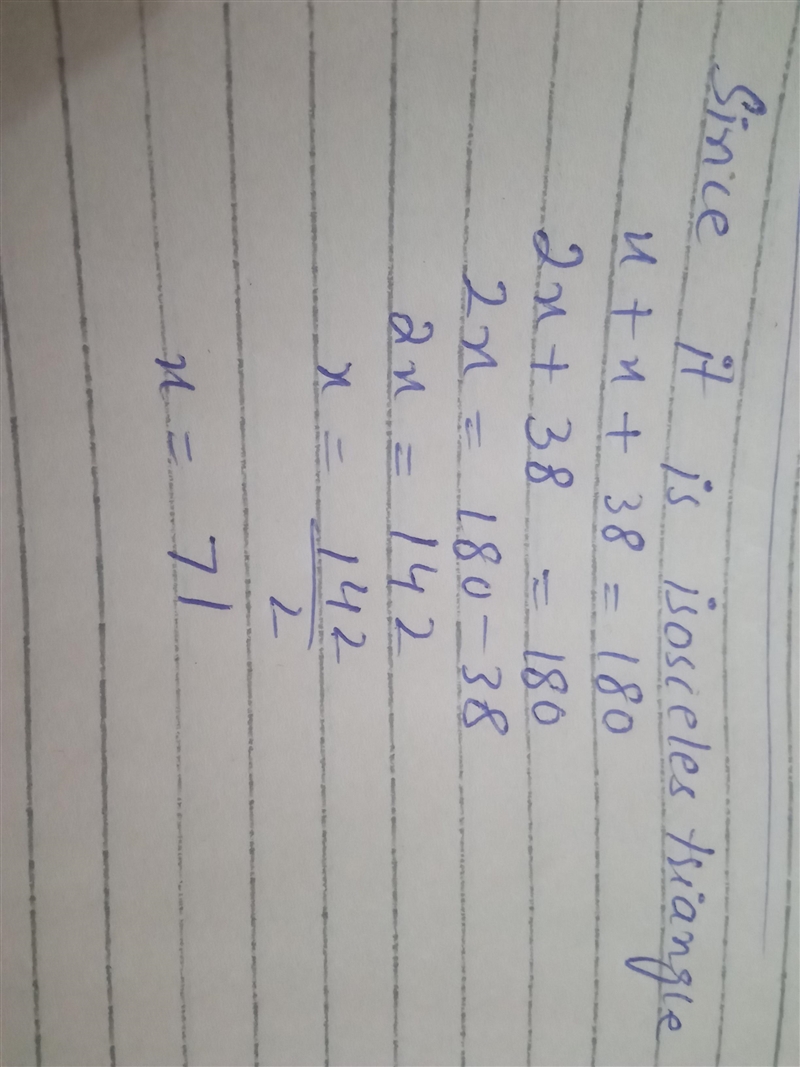 Since it is isosceles triangle
x + x + 38 = 180
2x + 38 = 180
2x = 180 - 38
2x = 142
x = 142
2
x = 71